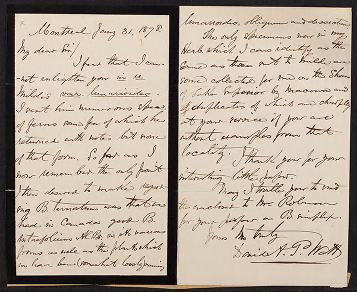 Montreal Jany 31, 1878.
My dear Sir/
I fear that I can-
not enlighten you in re
Milde's var. lunarioides.
I sent him numerous specs
of ferns some few of which he
returned with notes but none
of that form. So far as I
now remember the only point
I then desired to make regard-
ing B. ternatum was that we
had in Canada good B.
in its various
forms as well as the plants which
we have been somewhat
lunarioides, obliquum and dissectum.
The only specimens now in my
Herb. which I can identify as the
same as those sent to Milde are
some collected for me on the Shore
of Lake Superior by Macoun and
of duplicates of which and
at your service if you are
without examples from that
locality. I thank you for your
interesting little paper.
May I trouble you to mail
the enclosed to Mr. Robinson
for your paper on B. simplex.
Yours very truly
David A. P. Watt